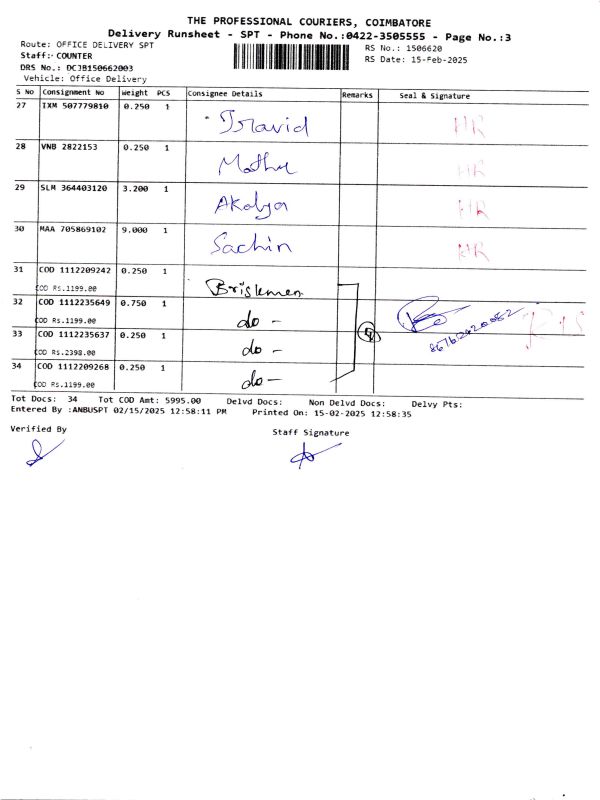 THE PROFESSIONAL COURIERS, COIMBATORE
Delivery Runsheet - SPT - Phone No.:0422-3505555 - Page No.:3
Route: OFFICE DELIVERY SPT
RS No.: 1506620
Staff: COUNTER
RS Date: 15-Feb-2025
DRS No.: DCJB150662003
Vehicle: Office Delivery
S No Consignment No Weight PCS Consignee Details Remarks Seal & Signature
27 IXM 507779810 0.250 1 Travid HR
28 VNB 2822153 0.250 1 HR
29 SLM 364403120 3.200 1 Akalya HR
30 MAA 705869102 9.000 1 Sachin HR
31 COD 1112209242 0.250 1
COD Rs.1199.00
32 COD 1112235649 0.750 1 do -
COD Rs.1199.00
33 COD 1112235637 0.250 1 do -
COD Rs.2398.00
34 COD 1112209268 0.250 1 do -
COD Rs.1199.00
4
Tot Docs: 34 Tot COD Amt: 5995.00 Delvd Docs: Non Delvd Docs: Delvy Pts:
Entered By :ANBUSPT 02/15/2025 12:58:11 PM Printed On: 15-02-2025 12:58:35
Verified By
Staff Signature